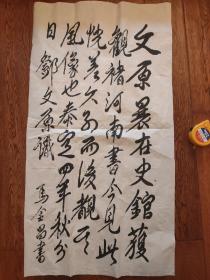 文原曩在史館獲
觀褚河南書今見此
恍若久別而後觀其
風像也泰定四年秋分
日鄧文原識 馬金昌書